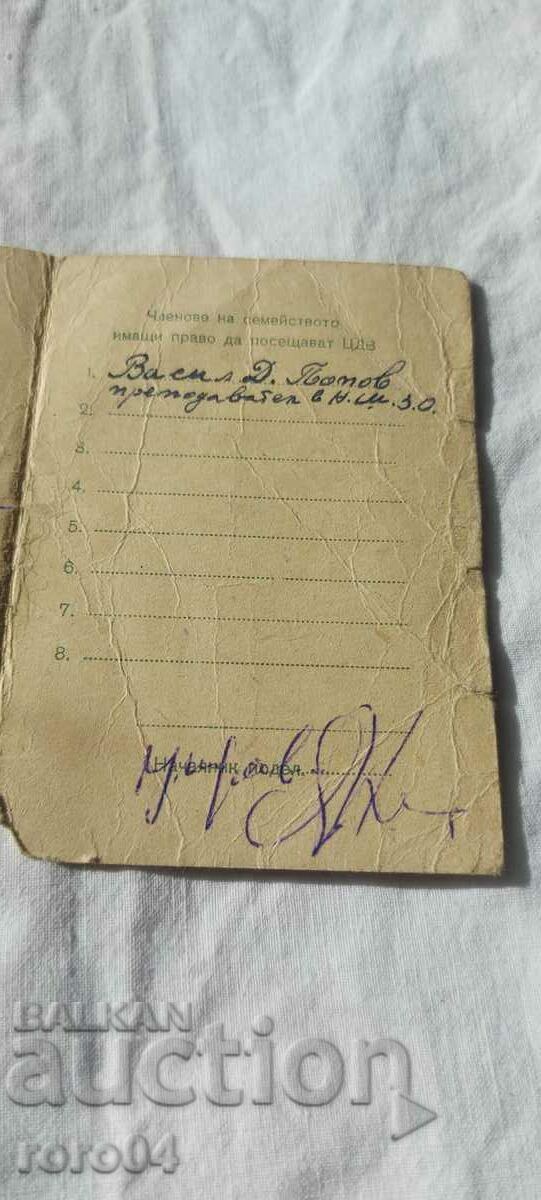 Членове на семейството
имащи право да посещават ЦДВ
1. Васил Д. Попов
преподавател в Н.Ш.З.О.
2.
3.
4.
5.
6.
7.
8.
Началник подел.
BALKAN
auction
roro04